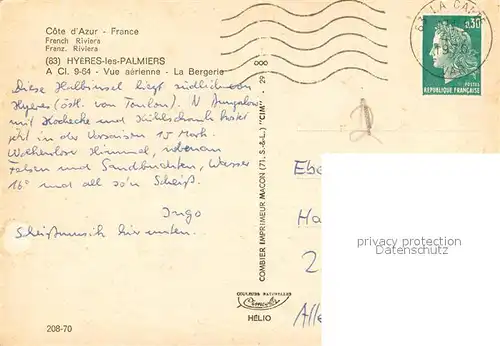 Côte d'Azur - France
French Riviera
Franz. Riviera
(83) HYÈRES-les-PALMIERS
A Cl. 9-64 - Vue aérienne - La Bergerie
Diese Halbinsel liegt südlich von
Hyères (östl. von Toulon). N Bungalow
mit Kochecke und Kühlschrank kostet
jetzt in der Vorsaison 15 Mark.
Wolkenloser Himmel, nebenan
Felsen und Sandbuchten, Wasser
16° und all so'n Scheiß.
Ingo
Scheißmusik hier unten.
208-70
COMBIER IMPRIMEUR MACON (71. S.-&-L.) "CIM" - 29
COULEURS NATURELLES
Cimcolor
HÉLIO
0,30
POSTES
REPUBLIQUE FRANÇAISE
83 LA CAP
VAR
Ebe
Ha
2
Alle
privacy protection
Datenschutz